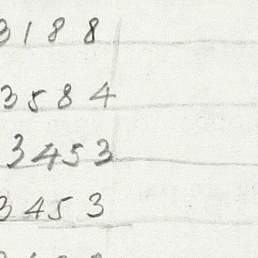 3188
3584
3453
3453